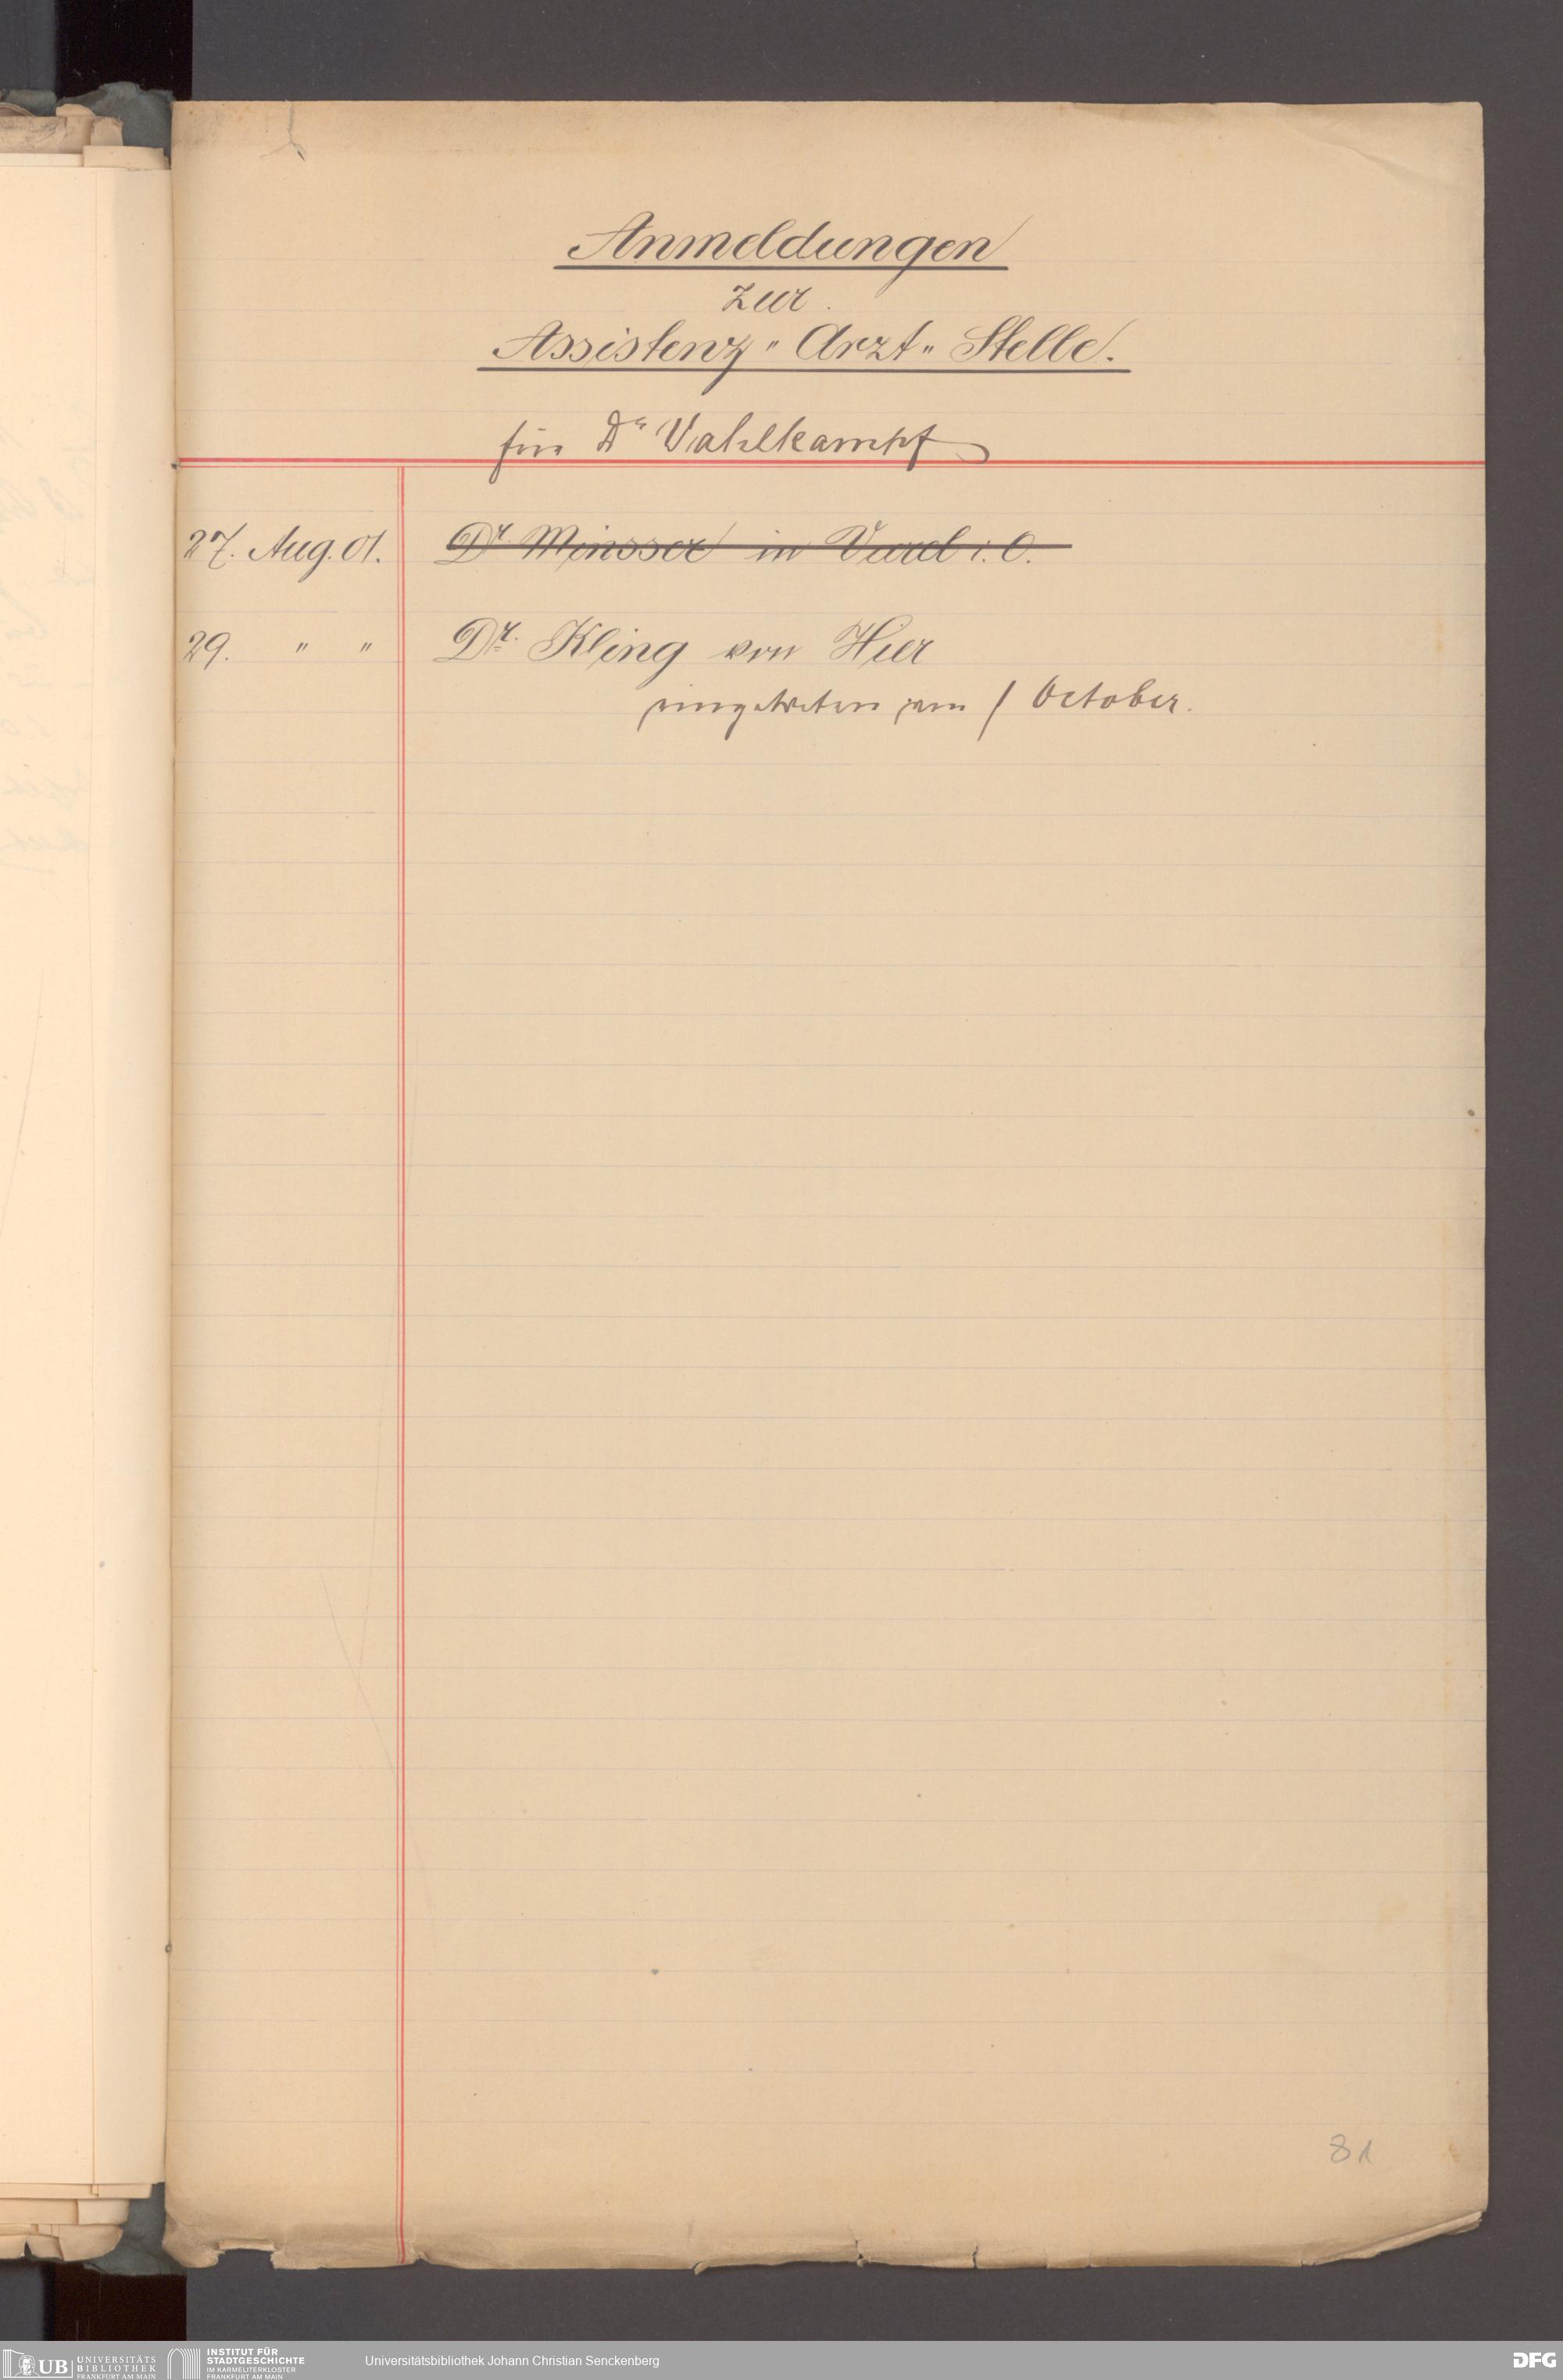 Anmeldungen
zur
Assistenz " Arzt " Stelle.
für Dr Vahlkampf
27. Aug. 01.
Dr. Minsser in Varel i. O.
29. " "
Dr. Kling von Hier
eingetreten am 1 October.
81
UB UNIVERSITÄTS
BIBLIOTHEK
FRANKFURT AM MAIN
INSTITUT FÜR
STADTGESCHICHTE
IM KARMELITERKLOSTER
FRANKFURT AM MAIN
Universitätsbibliothek Johann Christian Senckenberg
DFG